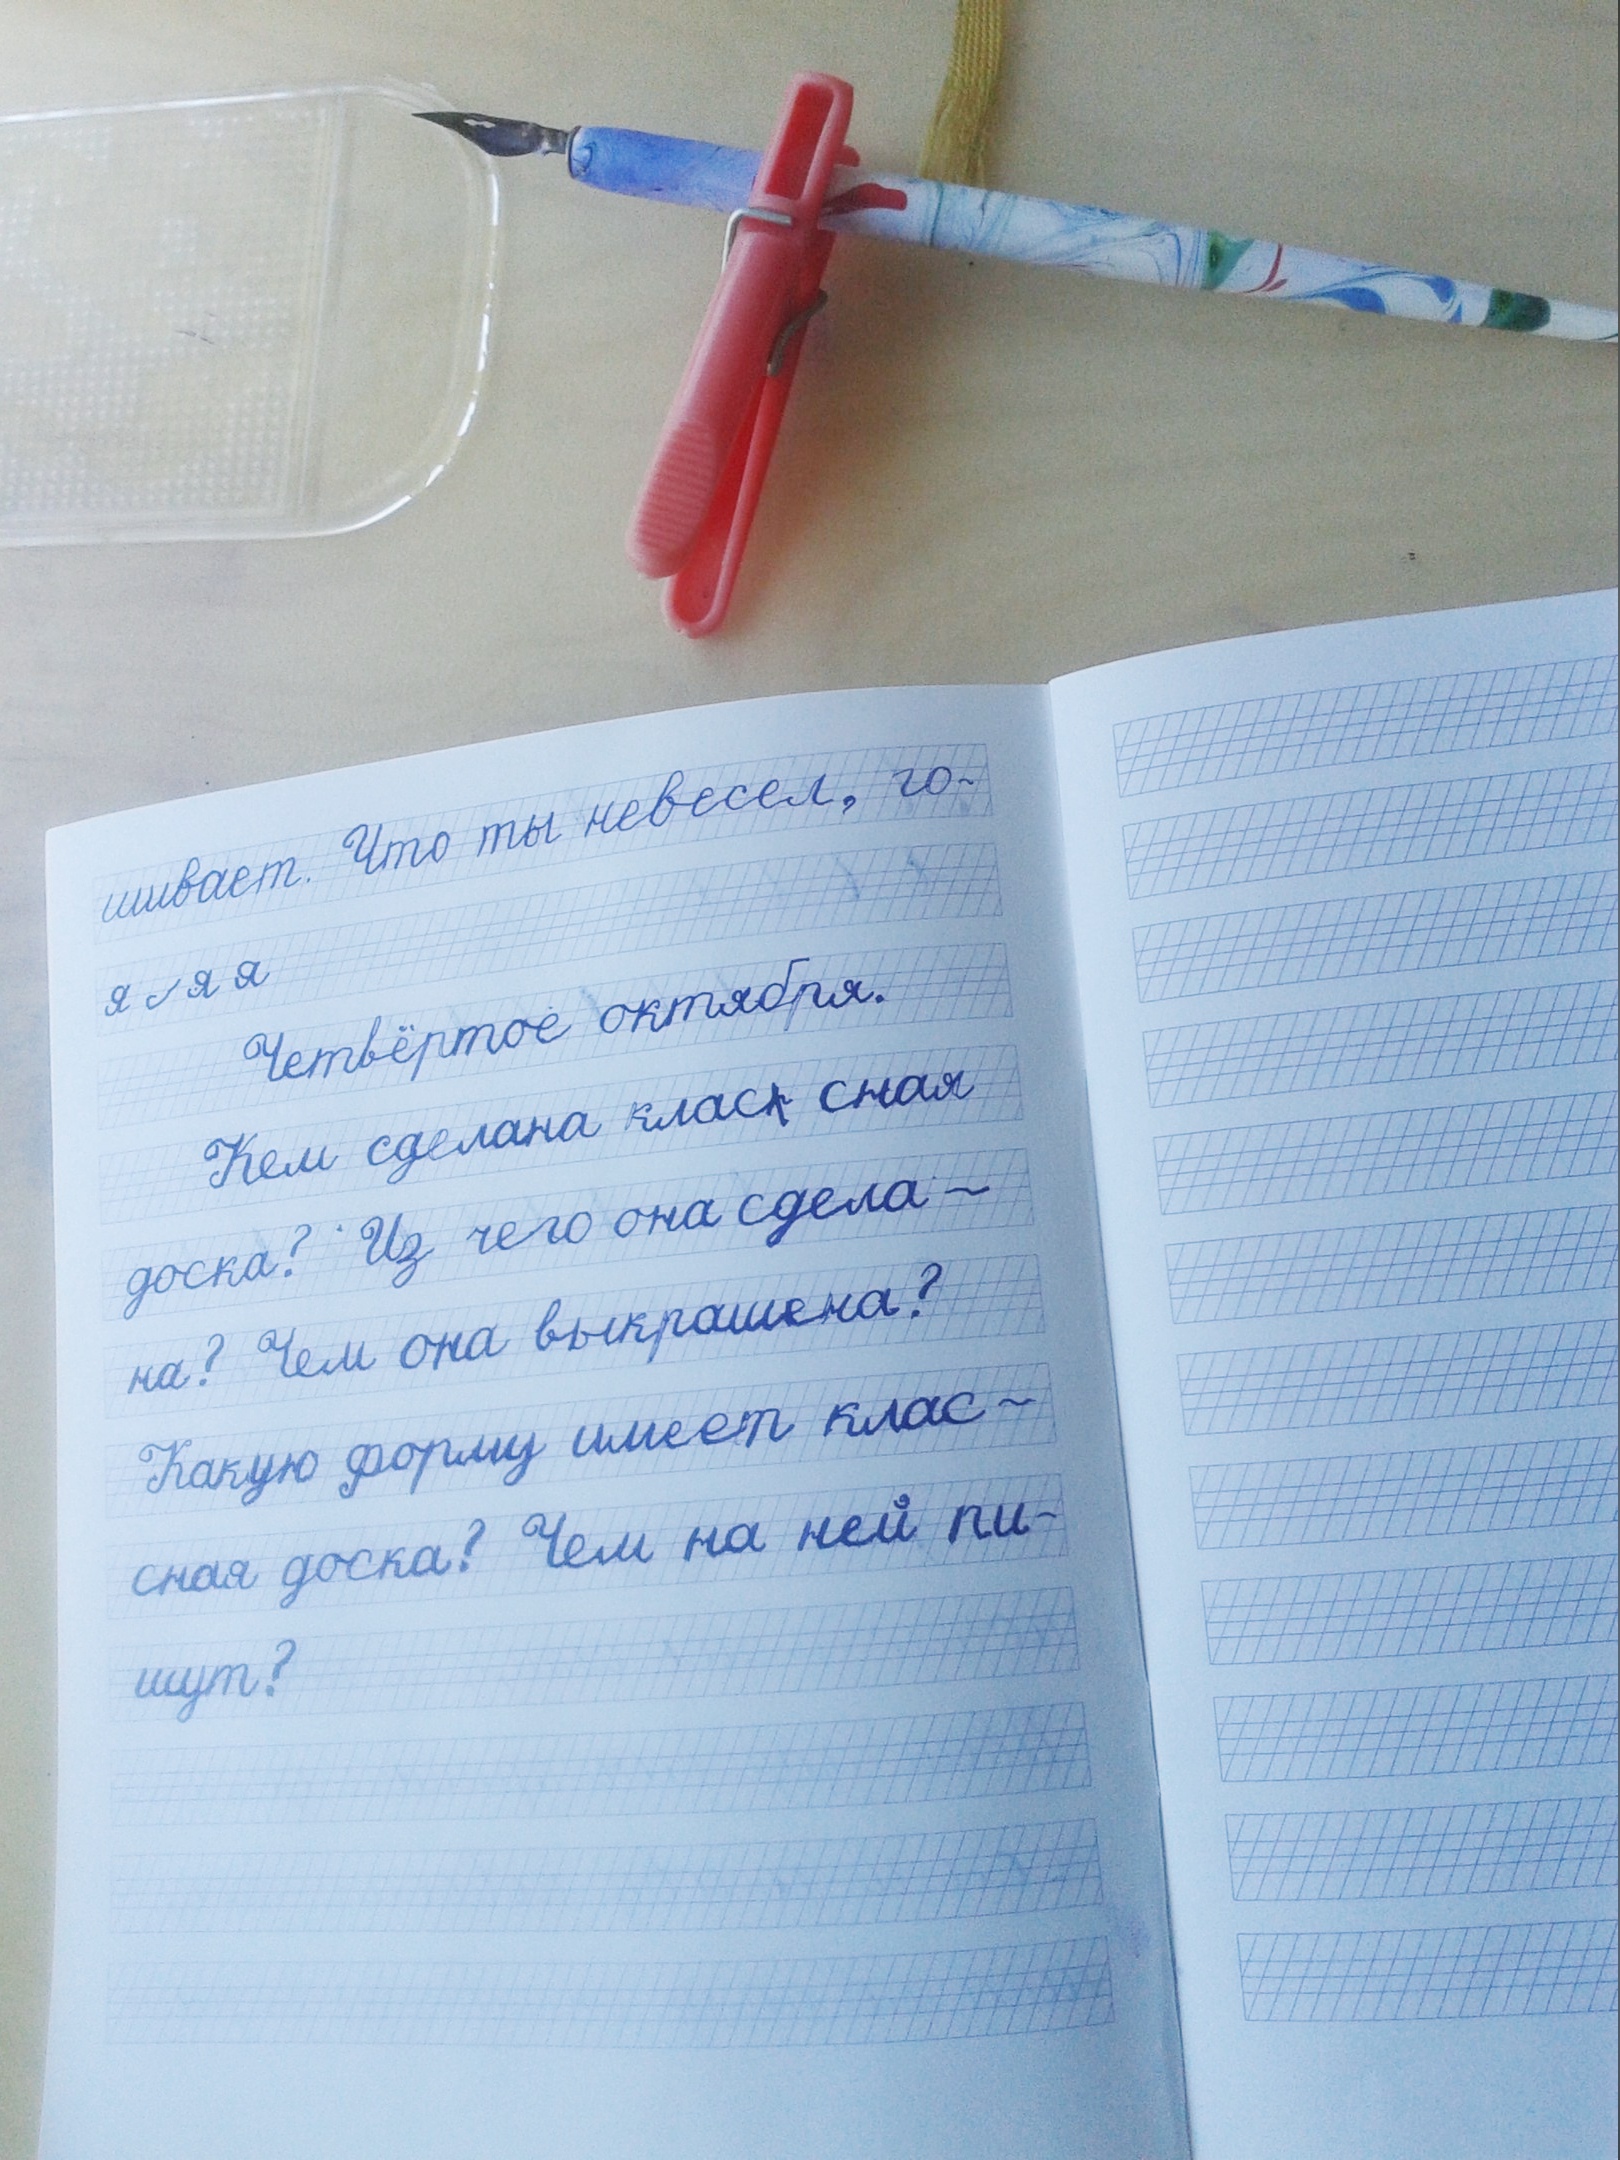 шивает. Что ты невесел, го-
я я я
Четвёртое октября.
Кем сделана класк сная
доска? Из чего она сдела-
на? Чем она выкрашена?
Какую форму имеет клас-
сная доска? Чем на ней пи-
шут?